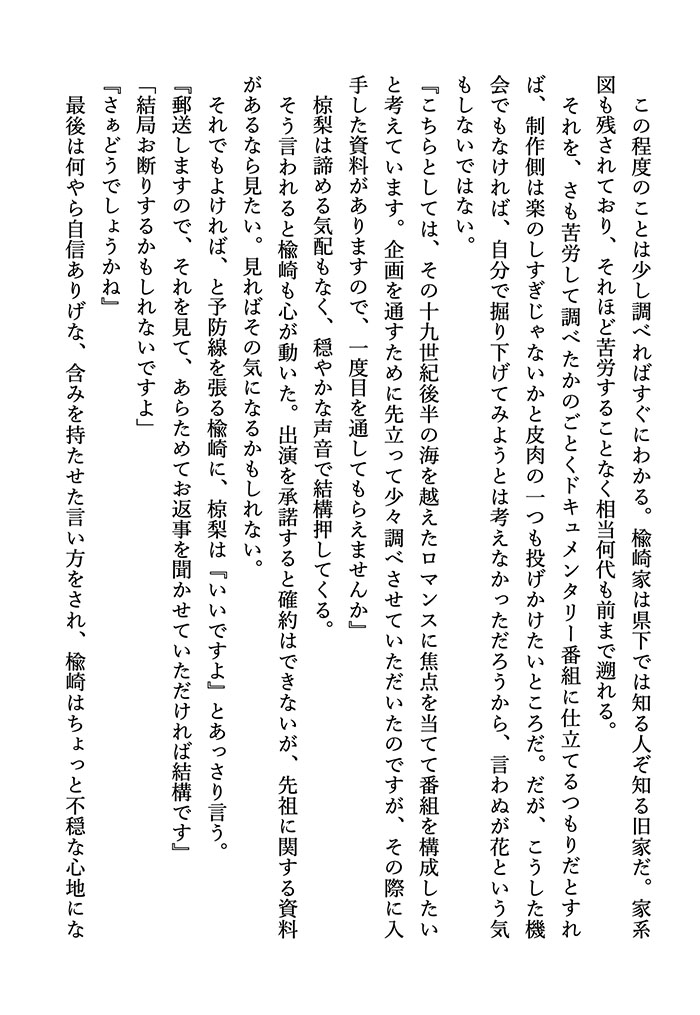 この程度のことは少し調べればすぐにわかる。楡崎家は県下では知る人ぞ知る旧家だ。家系
図も残されており、それほど苦労することなく相当何代も前まで遡れる。
　それを、さも苦労して調べたかのごとくドキュメンタリー番組に仕立てるつもりだとすれ
ば、制作側は楽のしすぎじゃないかと皮肉の一つも投げかけたいところだ。だが、こうした機
会でもなければ、自分で掘り下げてみようとは考えなかっただろうから、言わぬが花という気
もしないではない。
『こちらとしては、その十九世紀後半の海を越えたロマンスに焦点を当てて番組を構成したい
と考えています。企画を通すために先立って少々調べさせていただいたのですが、その際に入
手した資料がありますので、一度目を通してもらえませんか』
　椋梨は諦める気配もなく、穏やかな声音で結構押してくる。
　そう言われると楡崎も心が動いた。出演を承諾すると確約はできないが、先祖に関する資料
があるなら見たい。見ればその気になるかもしれない。
　それでもよければ、と予防線を張る楡崎に、椋梨は『いいですよ』とあっさり言う。
『郵送しますので、それを見て、あらためてお返事を聞かせていただければ結構です』
「結局お断りするかもしれないですよ」
『さぁどうでしょうかね』
　最後は何やら自信ありげな、含みを持たせた言い方をされ、楡崎はちょっと不穏な心地にな